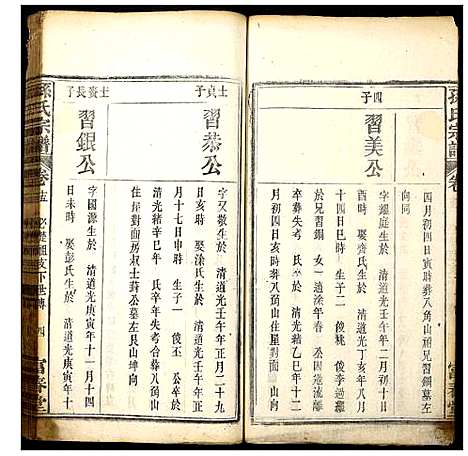 孫氏宗譜
卷
富春堂
四月初四日寅時葬八角山胞兄習錦墓左
向同
四子
習美公
字耀庭生於 清道光壬午年二月初十日
酉時 娶龔氏生於 清道光丁亥年八月
十四日巳時 生子二 俊桃 俊李過離
於兄習錮 女一適涂年春 公因過流離
失考 氏卒於 清光緒乙巳年十二
月初四日亥時葬八角山住屋對面 山向
士貞子
習恭公
字又敬生於 清道光壬午年正月二十九
日亥時 娶涂氏生於 清道光壬午年正
月十七日申時 生子一 俊丕 公卒於
清光緒辛巳年 氏卒年失考合葬八角山
住屋對面房叔士葑公墓左艮山坤向
士葵長子
習銀公
字國源生於 清道光庚寅年十一月十四
日未時 娶彭氏生於 清道光庚寅年十
孫氏宗譜
卷十五 必從祖支下世傳 四
富春堂